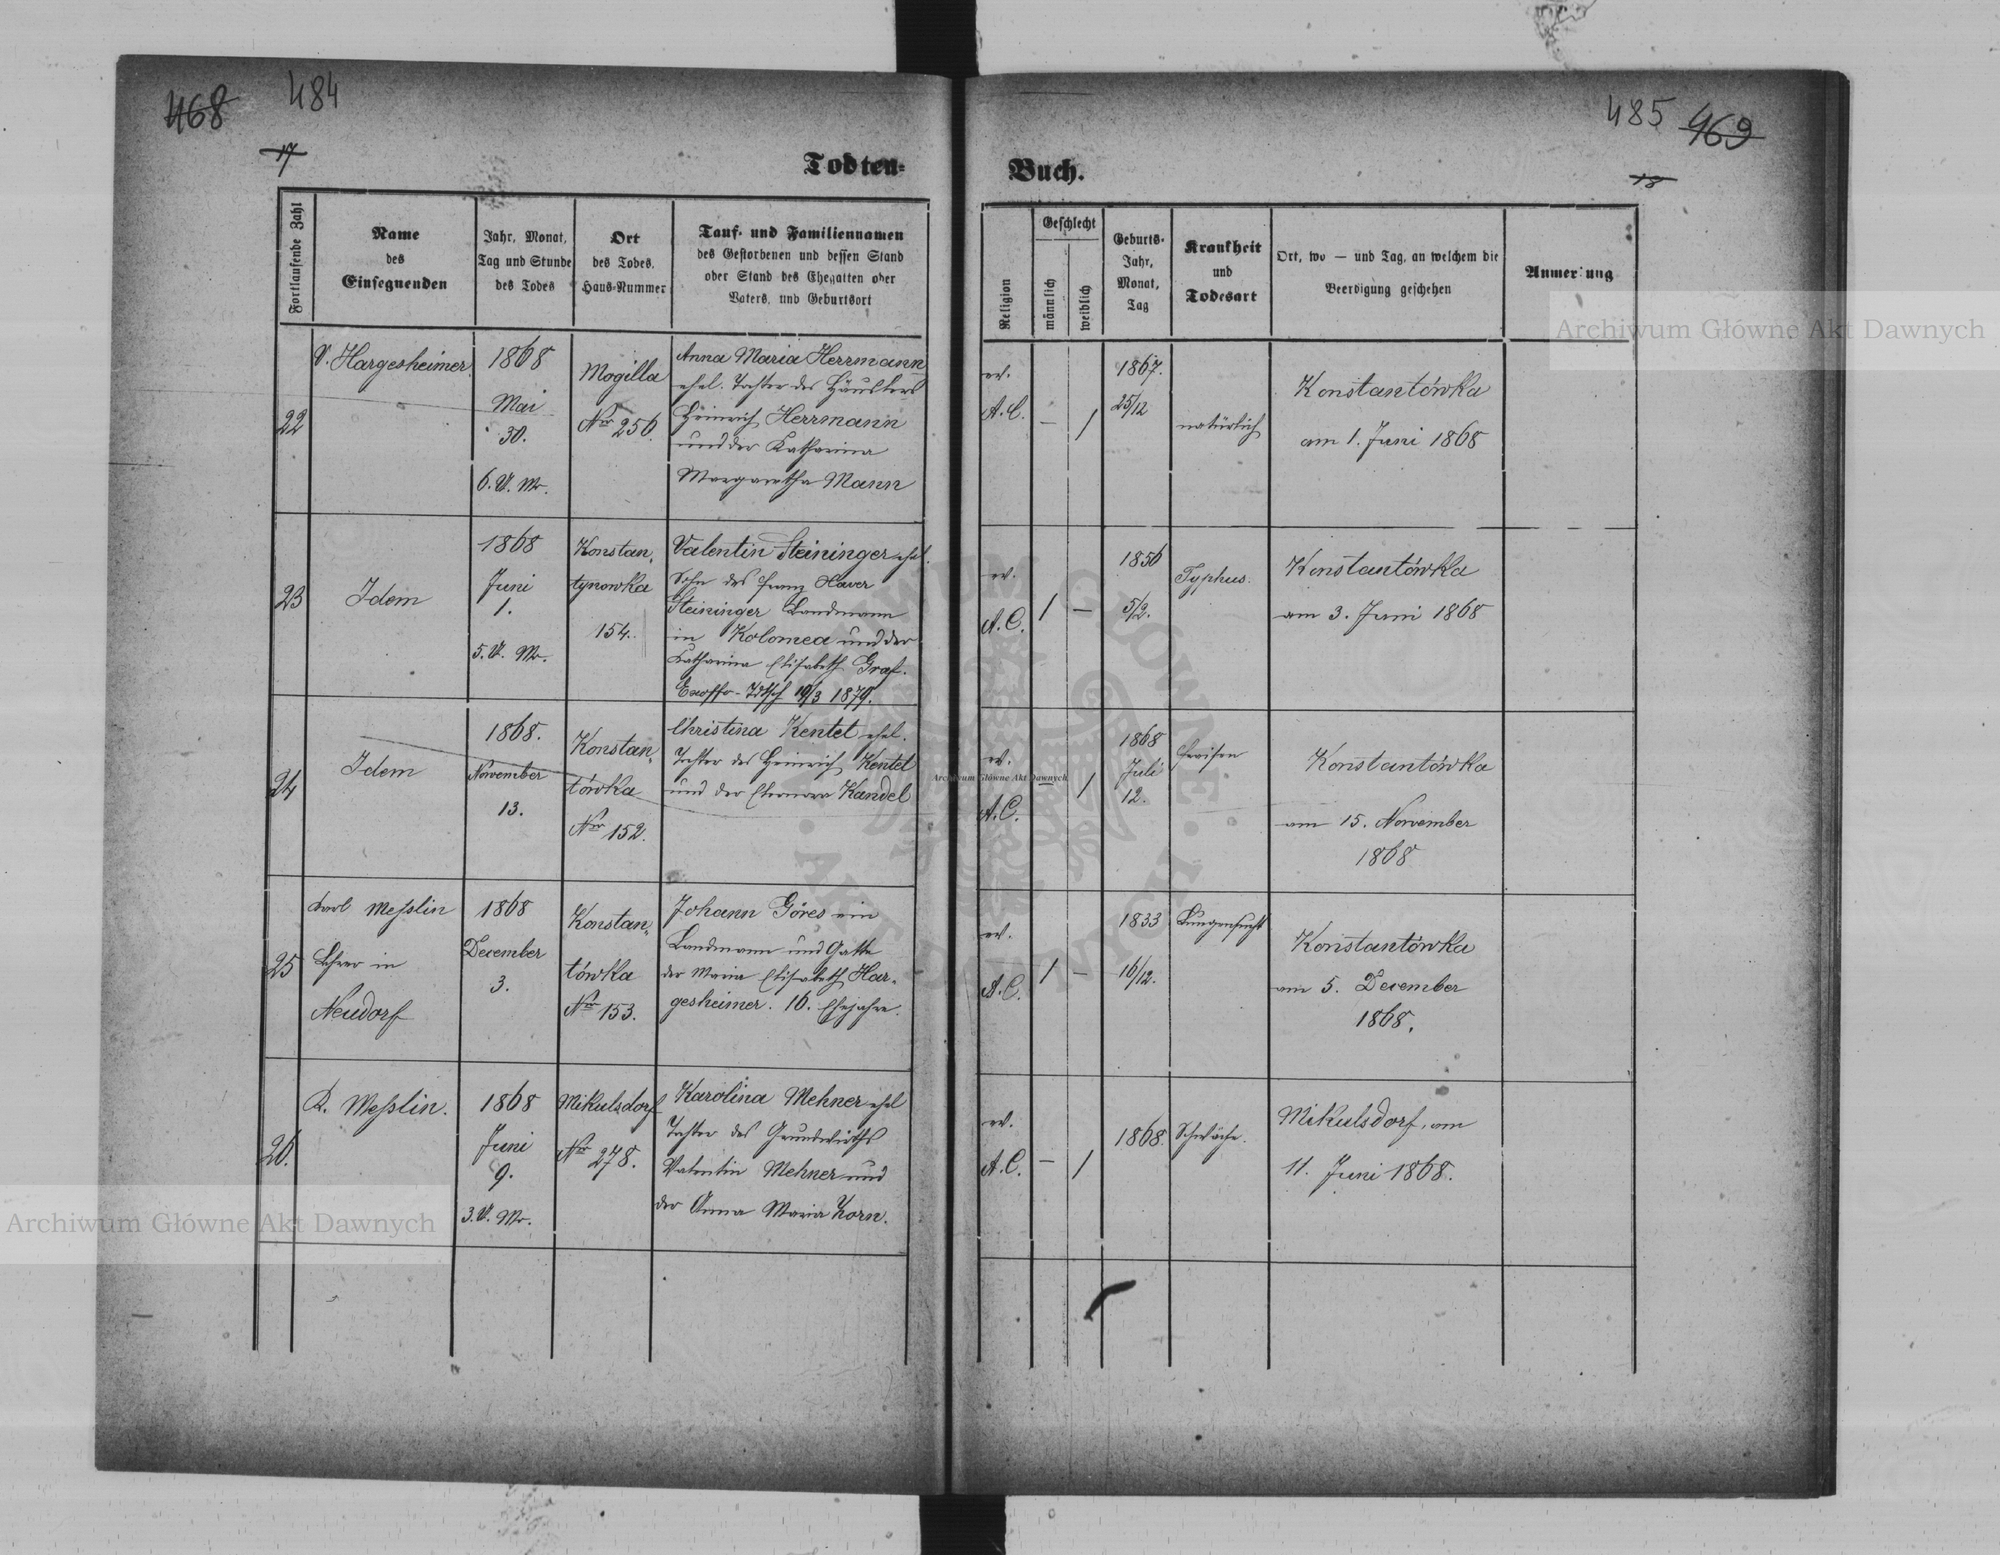 468 484
485 469
17
18
Todten-
Buch.
Fortlaufende Zahl
Name
des
Einsegnenden
Jahr, Monat,
Tag und Stunde
des Todes
Ort
des Todes.
Haus-Nummer
Tauf- und Familiennamen
des Gestorbenen und dessen Stand
oder Stand des Ehegatten oder
Vaters, und Geburtsort
Religion
Geschlecht
männlich
weiblich
Geburts-
Jahr,
Monat,
Tag
Krankheit
und
Todesart
Ort, wo — und Tag, an welchem die
Beerdigung geschehen
Anmerkung
22
V. Hargesheimer
1868
Mai
30.
6. U. Mr.
Mogilla
Nro 256.
Anna Maria Herrmann
ehel. Tochter des Häuslers
Heinrich Herrmann
und der Katharina
Margaretha Mann
ev.
A. C.
— /
1867.
25/12
natürlich
Konstantówka
am 1. Juni 1868
23
Idem
1868
Juni
1.
5. U. Mr.
Konstan,
tynowka
154.
Valentin Steininger ehel.
Sohn des Franz Xaver
Steininger Landmann
in Kolomea und der
Katharina Elisabeth Graf.
19/3 1879.
ev.
A. C.
/ —
1856
5/2.
Typhus.
Konstantówka
am 3. Juni 1868
24
Idem
1868.
November
13.
Konstan,
tówka
Nro 152.
Christina Kentel ehel.
Tochter des Heinrich Kentel
und der Eleonora Kandel
ev.
A. C.
— /
1868
Juli
12.
Fraisen
Konstantówka
am 15. November
1868
25
Karl Meßlin
Lehrer in
Neudorf
1868
December
3.
Konstan,
tówka
Nro 153.
Johann Göres ein
Landmann und Gatte
der Maria Elisabeth Har-
gesheimer. 16. Ehejahre.
ev.
A. C.
/ —
1833
16/12.
Lungensucht
Konstantówka
am 5. December
1868.
26.
K. Meßlin.
1868
Juni
9.
3. U. Mr.
Mikulsdorf
Nro 278.
Karolina Mehner ehel
Tochter des Grundwirths
Valentin Mehner und
der Anna Maria Korn.
ev.
A. C.
— /
1868.
Schwäche.
Mikulsdorf, am
11. Juni 1868.
Archiwum Główne Akt Dawnych
Archiwum Główne Akt Dawnych
Archiwum Główne Akt Dawnych
ARCHIWUM GŁÓWNE AKT DAWNYCH